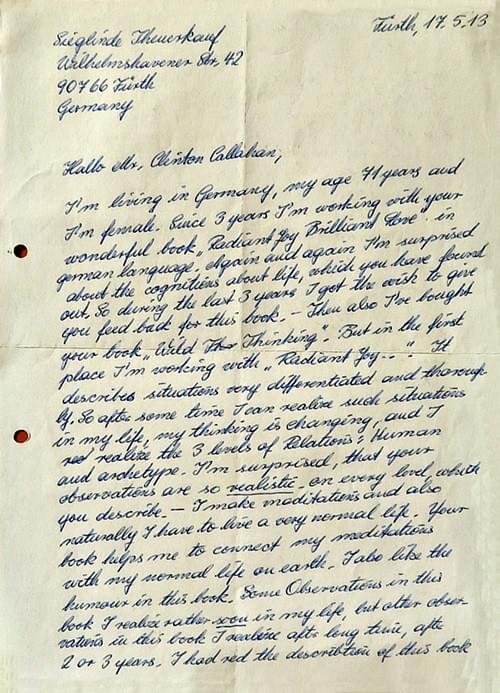 Fürth, 17.5.13
Sieglinde Theuerkauf
Wilhelmshavener Str. 42
90766 Fürth
Germany
Hallo Mr. Clinton Callahan,
I'm living in Germany, my age 71 years and
I'm female. Since 3 years I'm working with your
wonderful book „Radiant Joy Brilliant Love" in
german language. Again and again I'm surprised
about the cognitions about life, which you have found
out. So during the last 3 years I got the wish to give
you feed back for this book. – Then also I've bought
your book „Wild Thinking". But in the first
place I'm working with „Radiant Joy..". It
describes situations very differentiated and thorough-
ly. So after some time I can realize such situations
in my life, my thinking is changing, and I
realize the 3 levels of Relations: Human
and archetype. I'm surprised, that your
observations are so realistic on every level, which
you describe. – I make maditations and also
naturally I have to live a very normal life. Your
book helps me to connect my meditations
with my normal life on earth. I also like the
humour in this book. Some Observations in this
book I realize rather soon in my life, but other obser-
vations in this book I realize after long time, after
2 or 3 years. I had red the describtion of this book